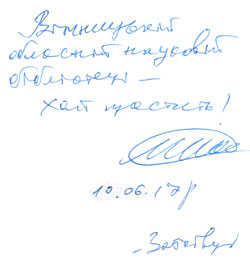 Вінницькій
обласній науковій
бібліотеці –
хай щастить!
10.06.17р